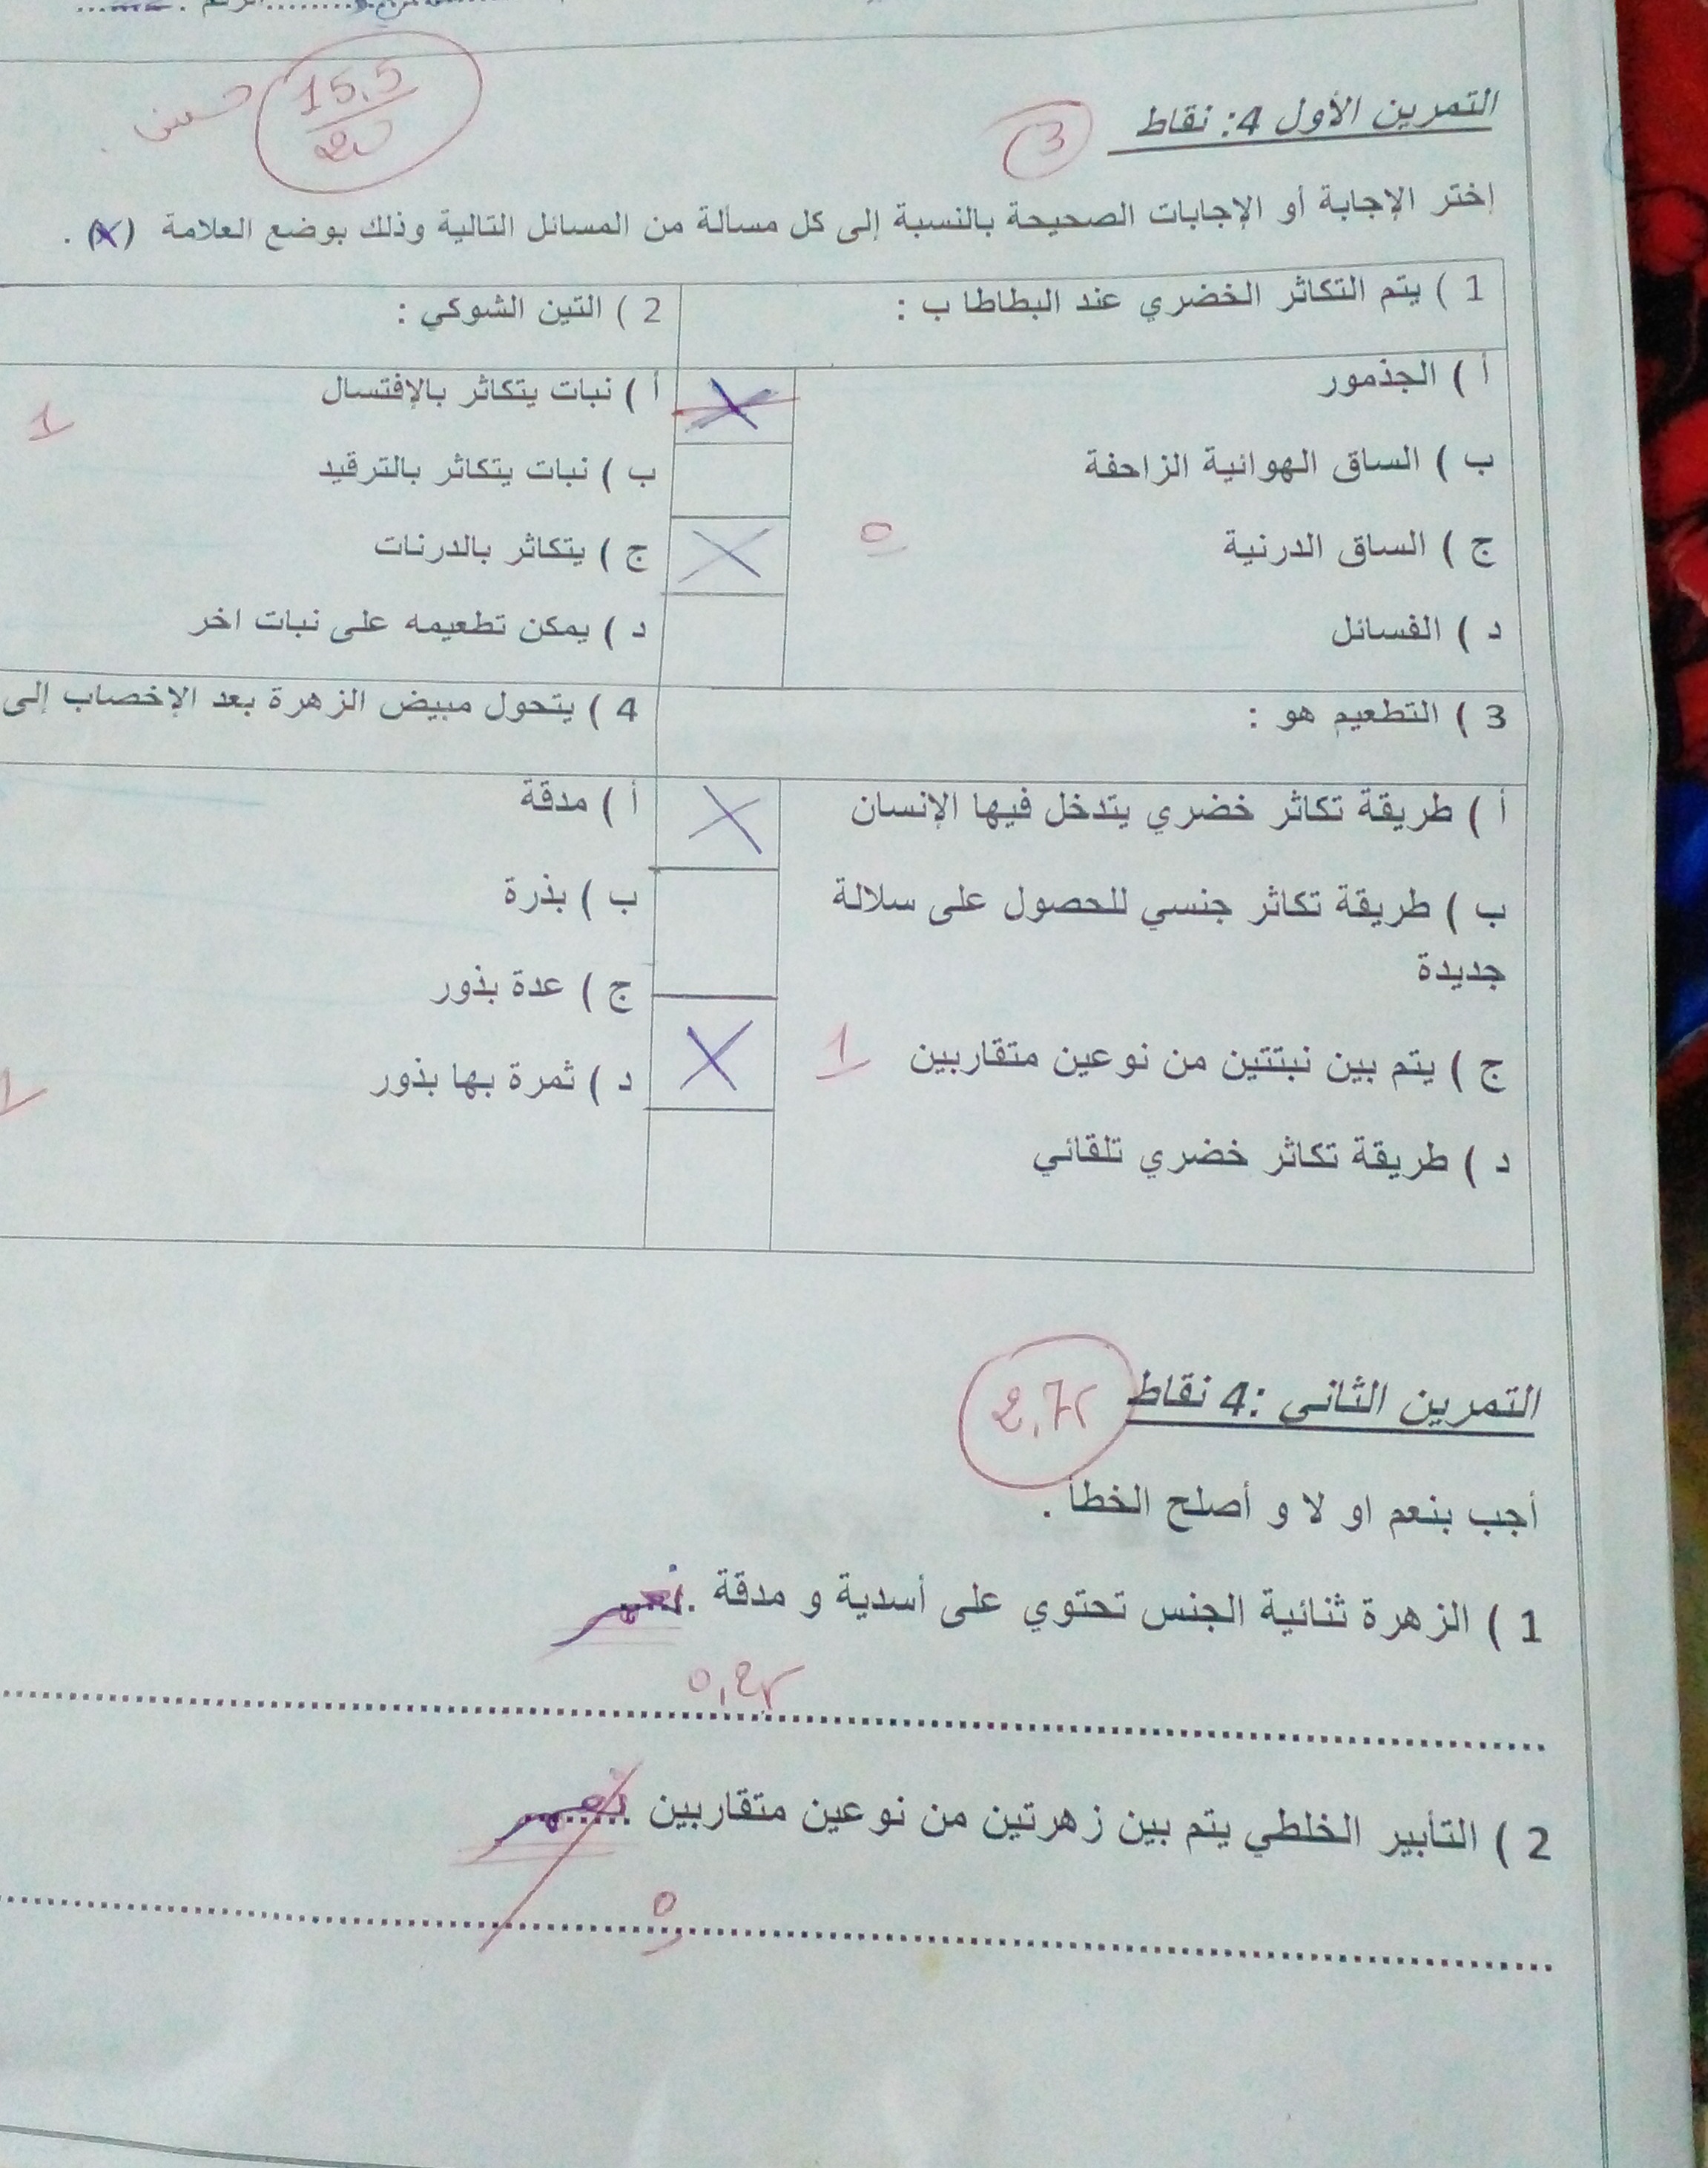 الرقم
15.5
20
حسن
التمرين الأول 4: نقاط
3
إختر الإجابة أو الإجابات الصحيحة بالنسبة إلى كل مسألة من المسائل التالية وذلك بوضع العلامة (X) .
1 ) يتم التكاثر الخضري عند البطاطا ب :
أ ) الجذمور
X
ب ) الساق الهوائية الزاحفة
ج ) الساق الدرنية
X
0
د ) الفسائل
2 ) التين الشوكي :
أ ) نبات يتكاثر بالإفتسال
1
ب ) نبات يتكاثر بالترقيد
ج ) يتكاثر بالدرنات
د ) يمكن تطعيمه على نبات اخر
3 ) التطعيم هو :
أ ) طريقة تكاثر خضري يتدخل فيها الإنسان
X
ب ) طريقة تكاثر جنسي للحصول على سلالة
جديدة
ج ) يتم بين نبتتين من نوعين متقاربين
1
X
د ) طريقة تكاثر خضري تلقائي
4 ) يتحول مبيض الزهرة بعد الإخصاب إلى
أ ) مدقة
ب ) بذرة
ج ) عدة بذور
د ) ثمرة بها بذور
1
التمرين الثاني :4 نقاط
2,75
أجب بنعم او لا و أصلح الخطأ .
1 ) الزهرة ثنائية الجنس تحتوي على أسدية و مدقة .نعم
0,25
2 ) التأبير الخلطي يتم بين زهرتين من نوعين متقاربين .....نعم
0